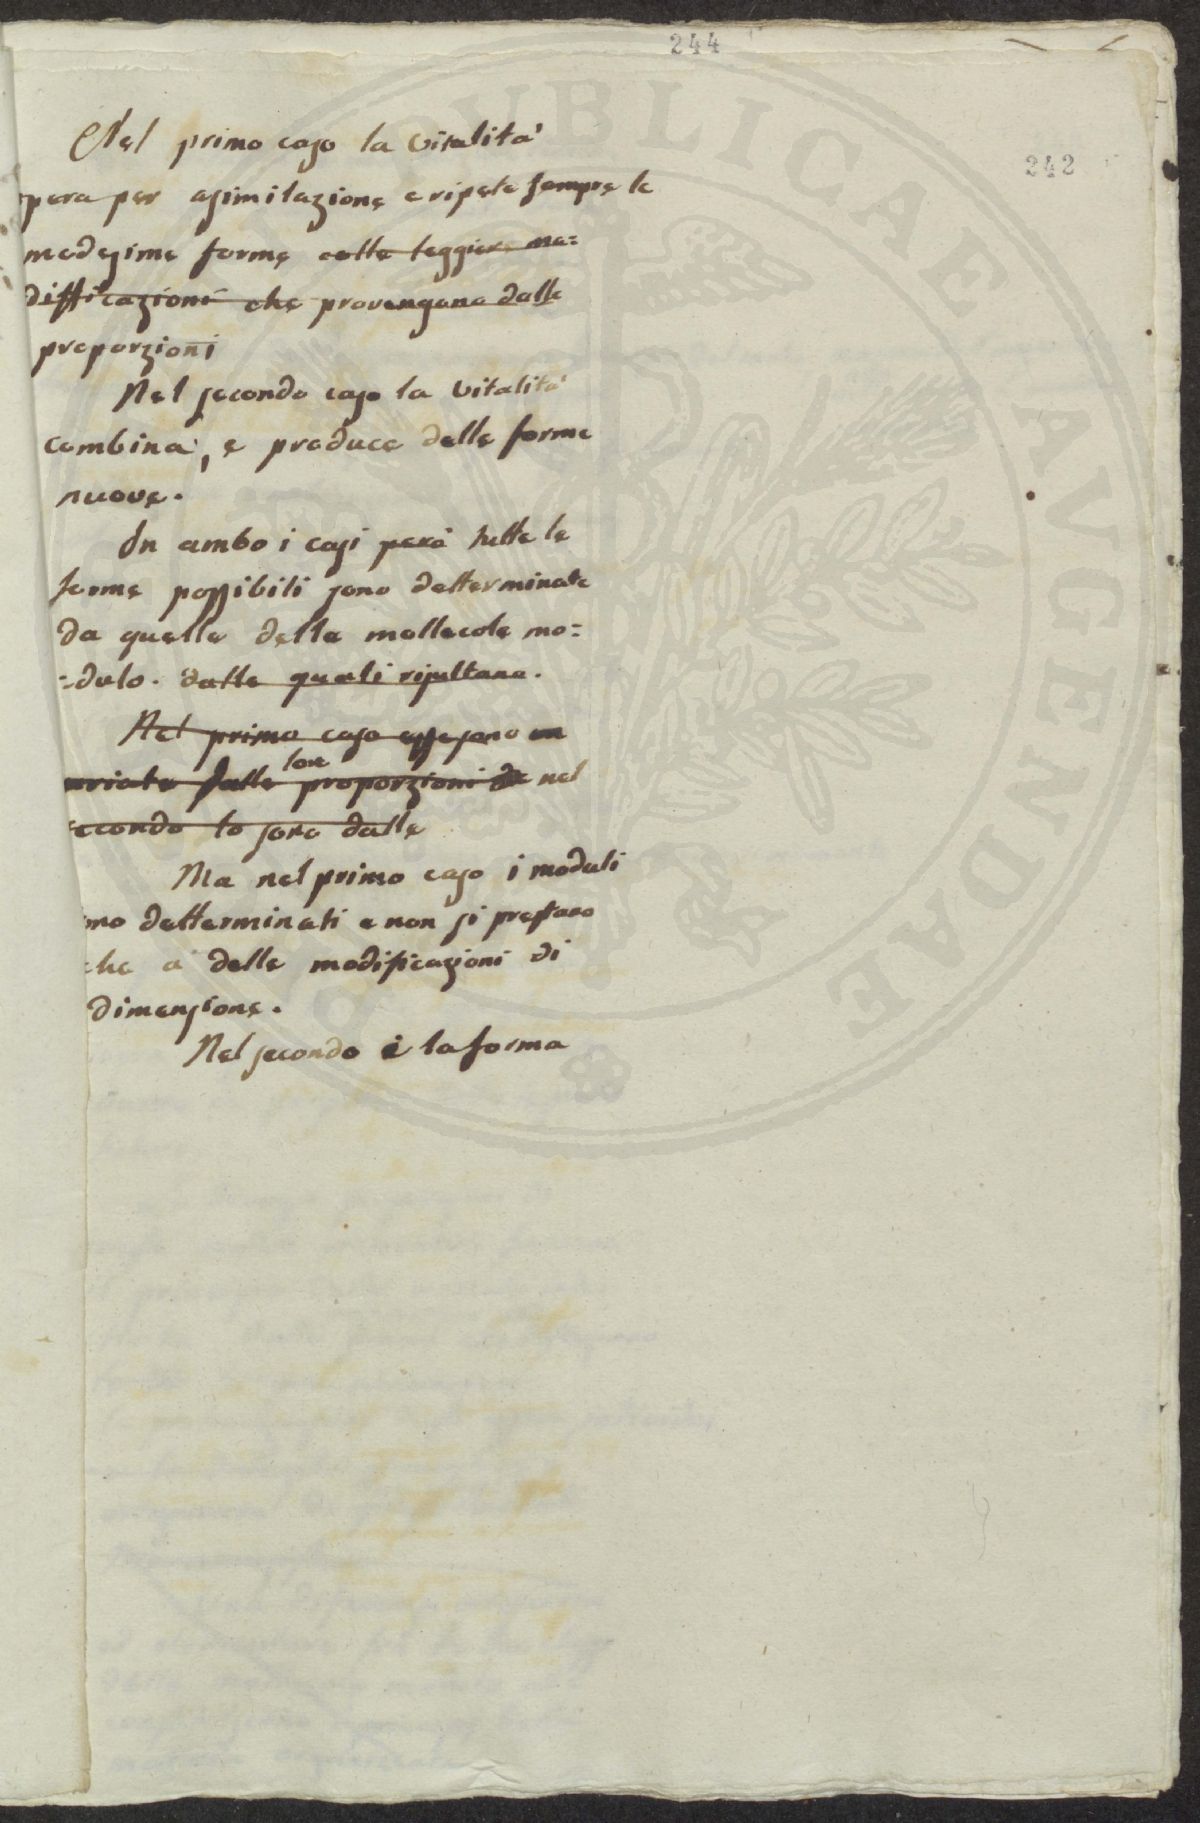 244
242
Nel primo caso la vitalità
pera per asimilazione e ripete sempre le
medesime forme colle leggiere mo=
difficazioni che provengono dalle
proporzioni
Nel secondo caso la vitalità
combina, e produce delle forme
nuove.
In ambo i casi però tutte le
forme possibili sono detterminate
da quelle delle mollecole mo=
=dulo. dalle quali risultano.
Nel primo caso esse sono
variate dalle loro proporzioni nel
econdo lo sono dalle
Ma nel primo caso i moduli
ono detterminati e non si prestano
che a delle modificazioni di
dimensione.
Nel secondo è la forma
PVBLICAE AVGENDAE